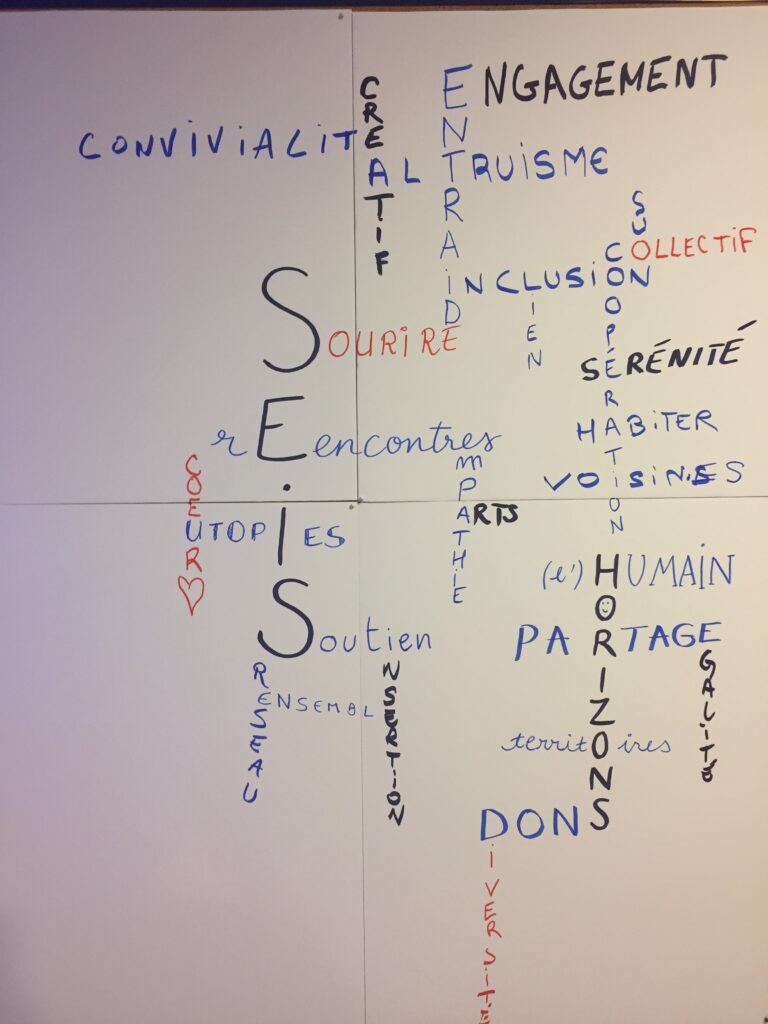 ENGAGEMENT
CREATIF
ENTRAIDE
CONVIVIALITE
ALTRUISME
COLLECTIF
INCLUSION
LIEN
COOPÉRATION
SOURIRE
SÉRÉNITÉ
SEiS
HABITER
rEencontres
VOISIN.ES
COEUR
EMPATHIE
ARTS
UTOPIES
(l')HUMAIN
HORIZONS
PARTAGE
Soutien
EGALITÉ
RESEAU
ENSEMBLE
INSERTION
territoires
DONS
DIVERSITE